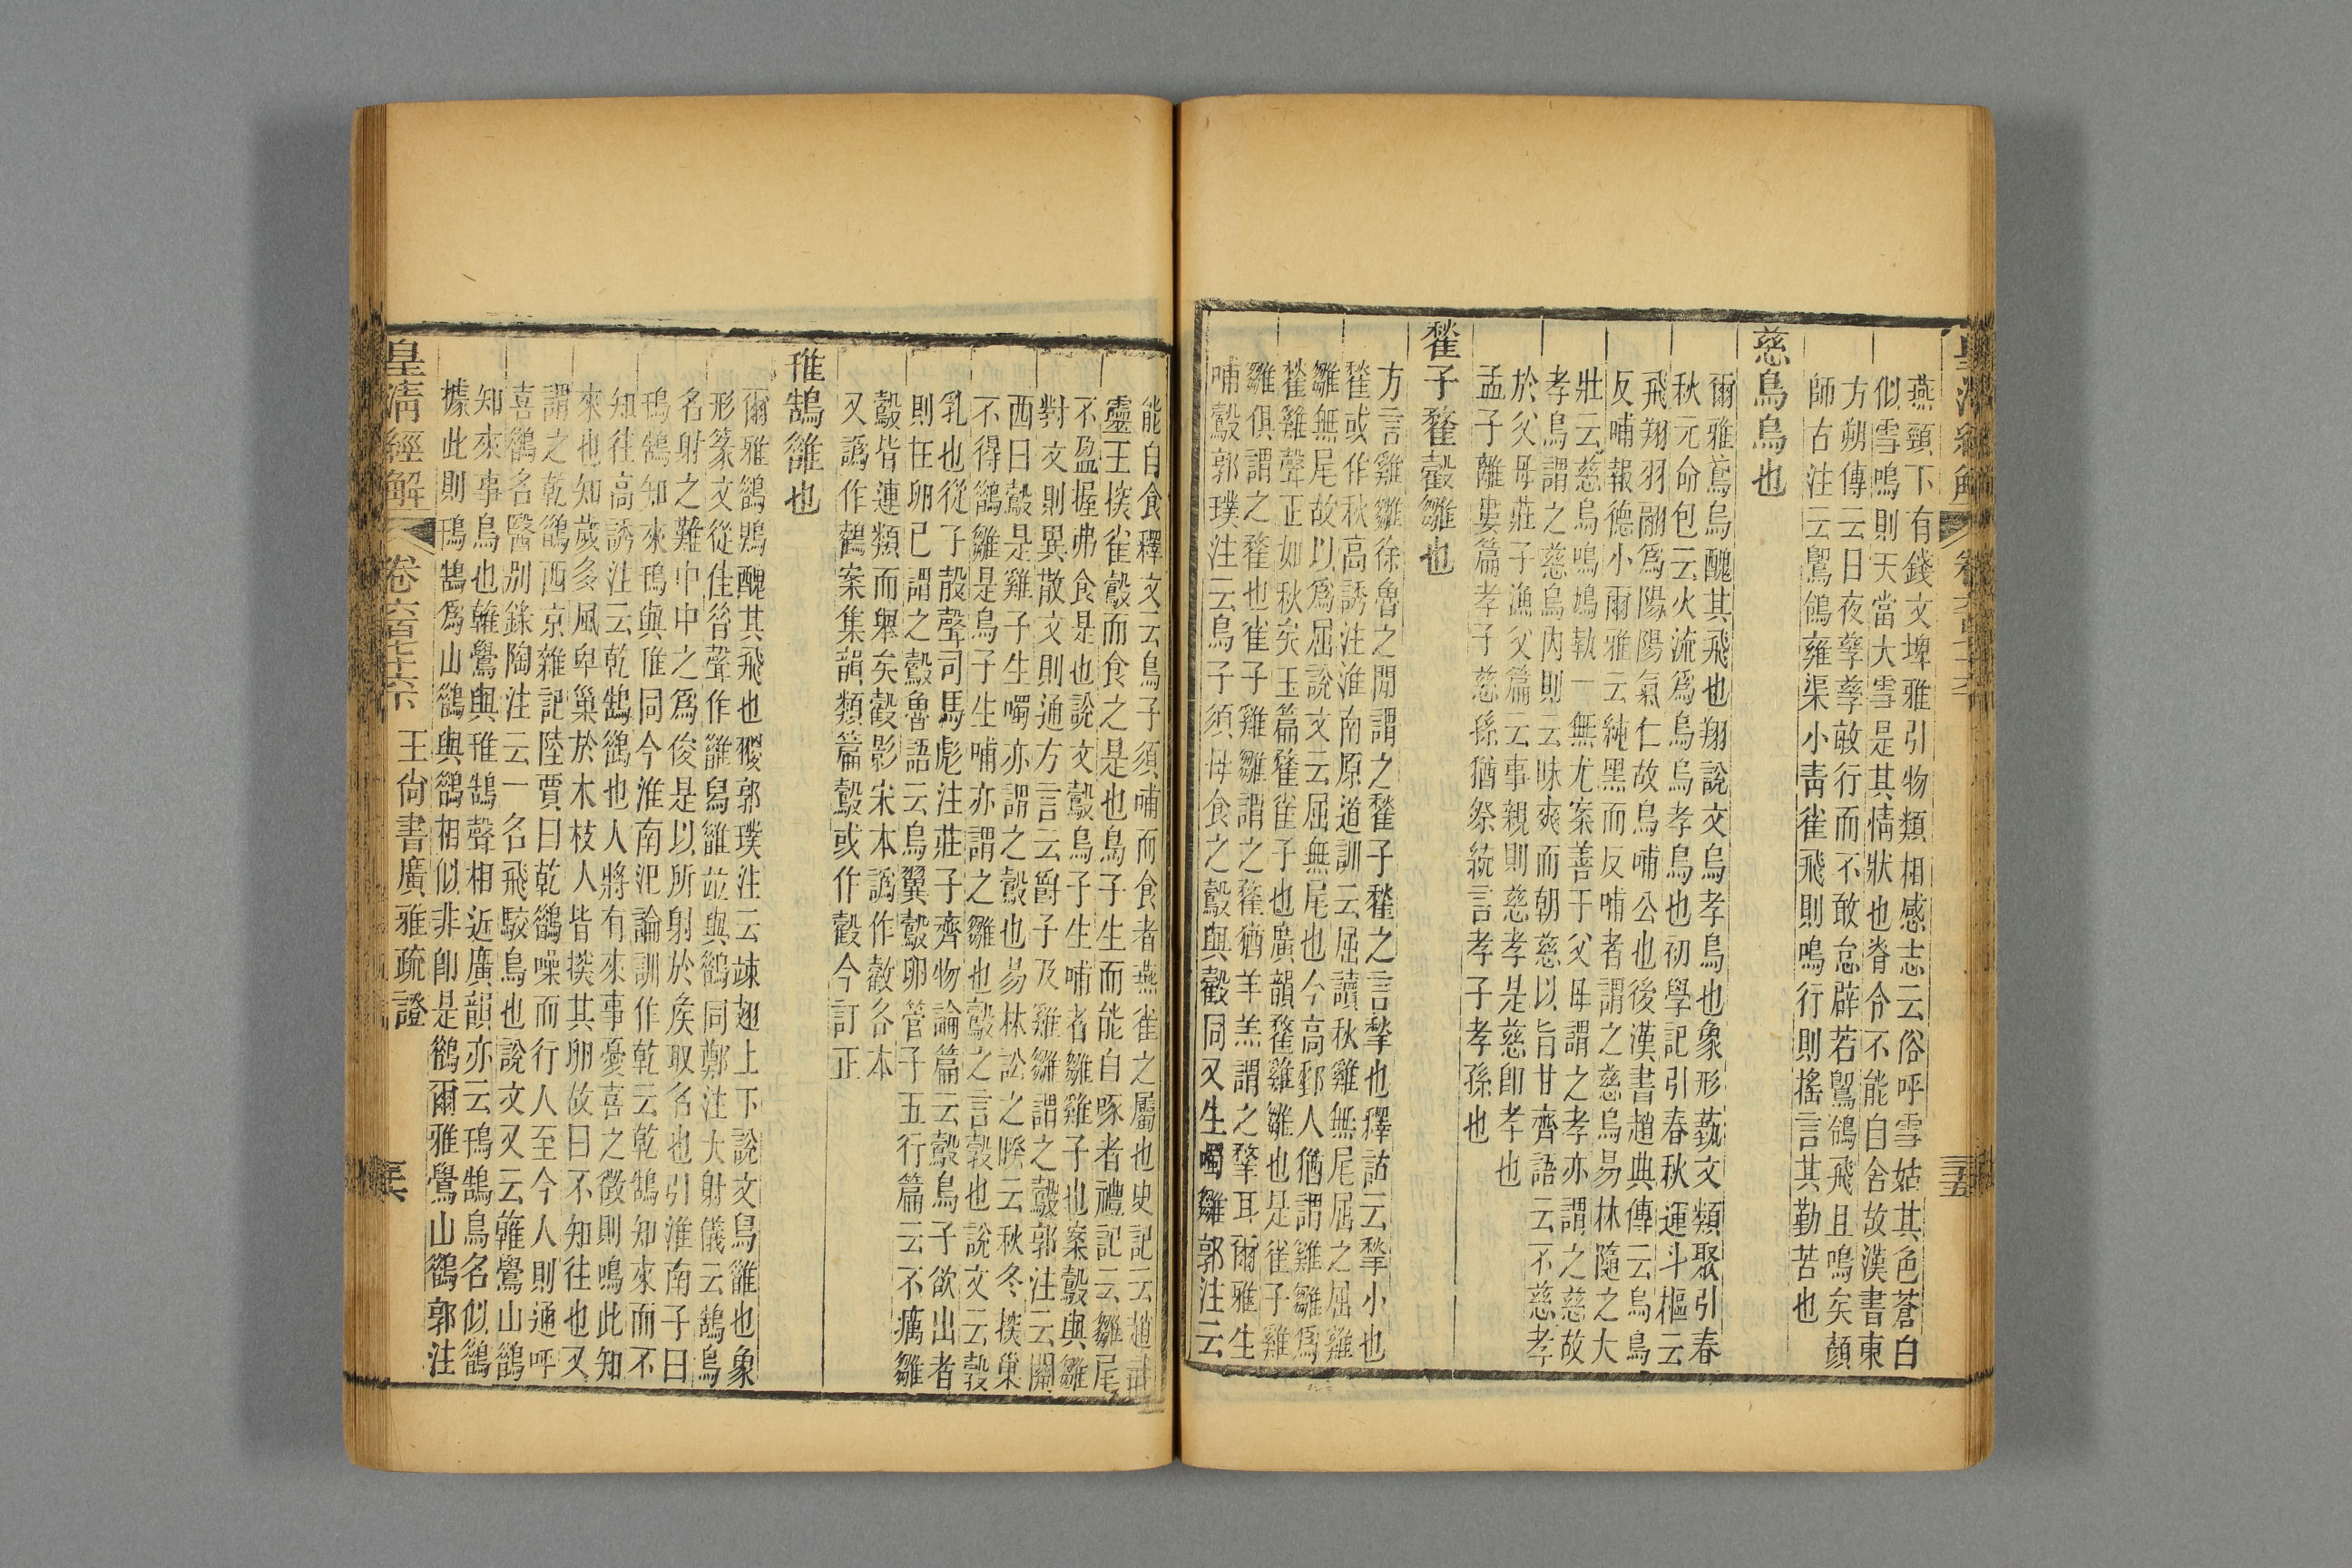 燕頸下有錢文埤雅引物類相感志云俗呼雪姑其色蒼白
似雪鳴則天當大雪是其情狀也脊令不能自舍故漢書東
方朔傳云日夜孳孳敏行而不敢怠辟若鶪鴒飛且鳴矣顏
師古注云鶪鴒雍渠小青雀飛則鳴行則搖言其勤苦也
慈烏烏也
爾雅鳶烏醜其飛也翔說文烏孝鳥也象形蓺文類聚引春
秋元命包云火流爲烏烏孝鳥也初學記引春秋運斗樞云
飛翔羽翮爲陽陽氣仁故烏哺公也後漢書趙典傳云烏鳥
反哺報德小爾雅云純黑而反哺者謂之慈烏易林隨之大
壯云慈烏鳴鳩執一無尤案善于父母謂之孝亦謂之慈故
孝烏謂之慈烏內則云昧爽而朝慈以旨甘齊語云不慈孝
於父母莊子漁父篇云事親則慈孝是慈卽孝也
孟子離婁篇孝子慈孫猶祭統言孝子孝孫也
䨂子䨂鷇雛也
方言雞雛徐魯之閒謂之䨂子䨂之言揫也釋詁云揫小也
䨂或作秋高誘注淮南原道訓云屈讀秋雞無尾屈之屈雞
雛無尾故以爲屈說文云屈無尾也今高郵人猶謂雞雛爲
䨂雞聲正如秋矣玉篇䨂雀子也廣韻䨂雞雛也是雀子雞
雛俱謂之䨂也雀子雞雛謂之䨂猶羊羔謂之羍耳爾雅生
哺鷇郭璞注云鳥子須母食之鷇與㲉同又生噣雛郭注云
能自食釋文云鳥子須哺而食者燕雀之屬也史記云趙武
靈王探雀鷇而食之是也鳥子生而能自啄者禮記云雛尾
不盈握弗食是也說文鷇鳥子生哺者雛雞子也案鷇與雛
對文則異散文則通方言云爵子及雞雛謂之鷇郭注云關
西曰鷇是雞子生噣亦謂之鷇也易林訟之睽云秋冬探巢
不得鵲雛是鳥子生哺亦謂之雛也鷇之言㝅也說文云㝅
乳也從子㱿聲司馬彪注莊子齊物論篇云鷇鳥子欲出者
則在卵已謂之鷇魯語云鳥翼鷇卵管子五行篇云不癘雛
鷇皆連類而舉矣㲉影宋本譌作㲉各本
又譌作鸛案集韻類篇鷇或作㲉今訂正
鳱鵠䧿也
爾雅鵲鶪醜其飛也翪郭璞注云竦翅上下說文舄䧿也象
形篆文從隹昔聲作䧿舄䧿竝與鵲同鄭注大射儀云鵠鳥
名射之難中中之爲俊是以所射於矦取名也引淮南子曰
鳱鵠知來鳱與䧲同今淮南氾論訓作乾云乾鵠知來而不
知往高誘注云乾鵠鵲也人將有來事憂喜之徵則鳴此知
來也知歲多風卑巢於木枝人皆探其卵故曰不知往也又
謂之乾鵲西京雜記陸賈曰乾鵲噪而行人至今人則通呼
喜鵲名醫別錄陶注云一名飛駁鳥也說文又云雗鷽山鵲
知來事鳥也雗鷽與䧲鵠聲相近廣韻亦云鳱鵠鳥名似鵲
據此則鳱鵠爲山鵲與鵲相似非卽是鵲爾雅鷽山鵲郭注
皇淸經解 卷六百七十六下 王尙書廣雅疏證 三六